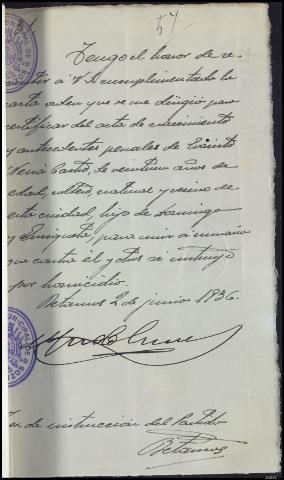 57
Tengo el honor de re-
tir a V.I. cumplimentada la
carta orden que se me dirigió para
certificar del acta de nacimiento
y antecedentes penales de
Castro, de veintiun años de
edad, soltero, natural y vecino de
esta ciudad, hijo de Domingo
y para unir a sumario
que contra él y otros se instruye
por homicidio.
Betanzos 2 de junio 1936.
de instrucción del Partido
Betanzos